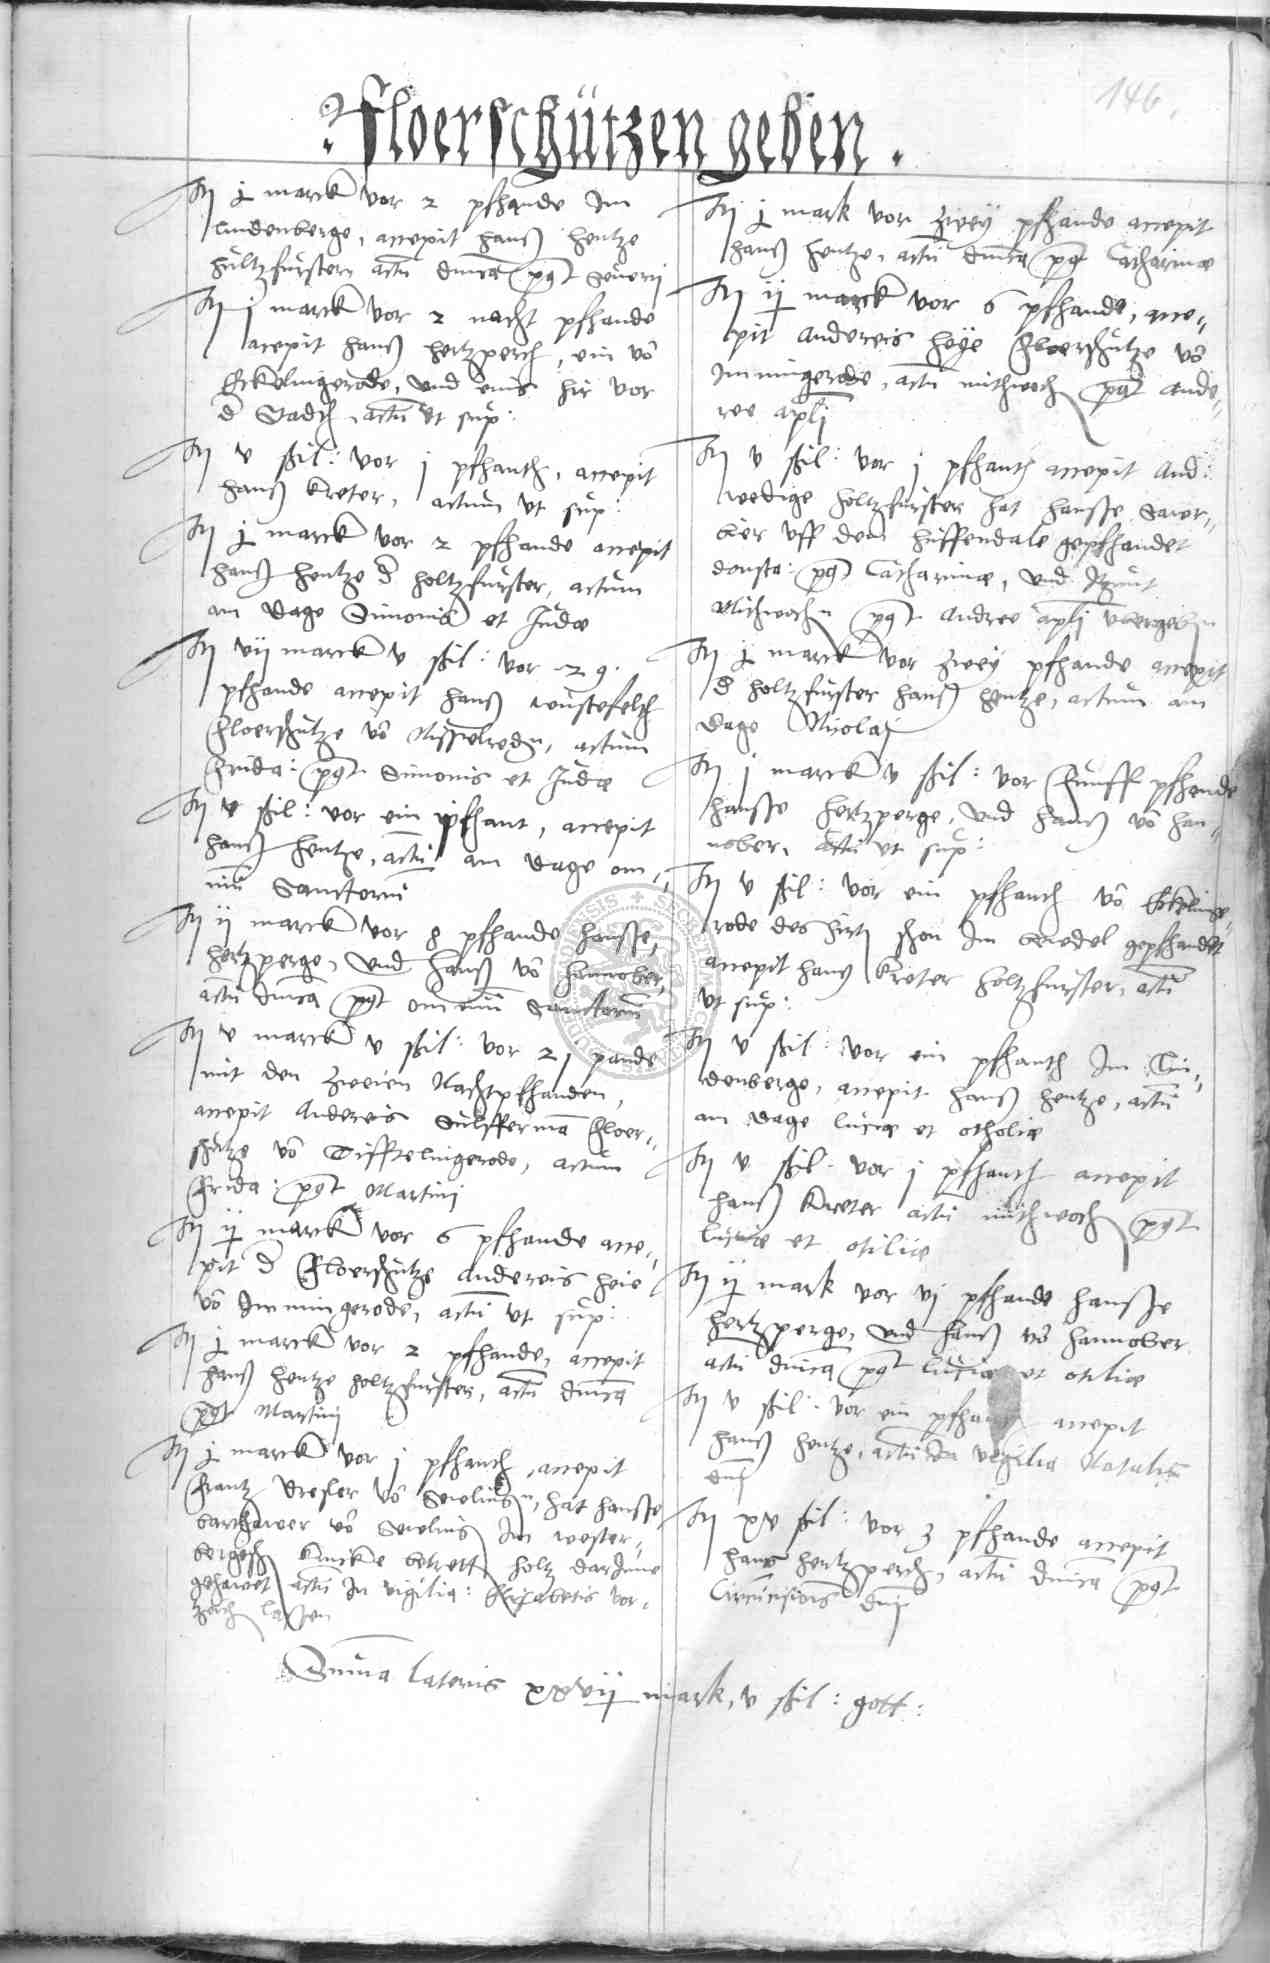 146.
Floerschützen geben.
It j marck vor 2 pfhande Im
lindenberge, accepit Hanß Hentze
Holtzfurster, actu dmca post Severij
It j marck vor 2 nacht pfhande
acepit Hanß Hertzperch, ein vo
Eckelingerode, und eins hir vor
d Stadth, actu ut sup:
It v ßil: vor j pfhanth, accepit
Hanß Kreter, actum ut sup:
It j marck vor 2 pfhande accepit
Hanß Hentze d holtzfurster, actum
am dage Simonis et Judæ
It vij marck v ßil: vor 29.
pfhande accepit Hanß wustefelth
Floerschutze vo Nisselredn, actum
Frida: post Simonis et Judæ
It v ßil: vor ein pfhant, accepit
Hanß Hentze, actu am dage om-
niu Sanctoru
It ij marck vor 8 pfhande Hansse,
Hertzperge, und Hanß vo Hannober,
actu dmca post omniu Sanctoru
It v marck v ßil: vor 21 pande
mit den zweien Nachtpfhanden,
accepit Andereis Sulfferma Floer-
schutze vo Tifftelingerode, actum
Frida: post Martinij
It ij marck vor 6 pfhande acce-
pit d Floerschutze Andereis Heie
vo Immingerode, actu ut sup:
It j marck vor 2 pfhande, accepit
Hanß Hentze holtzfurster, actu dmca
post Martinij
It j marck vor j pfhanth, accepit
Frantz Dresler vo, hat Hansse
vo Im wester-
holtz darInne
gehawet actu In vigilia: Elizabetis vor-
lassen
It j mark vor zweÿ pfhande accepit
Hanß Hentze, actu dmca post Catharinæ
It ij marck vor 6 pfhande, acce-
pit Andereis Heÿe Floerschutze vo
Immingerode, actu mithwoch post Ande-
ree apli
It v ßil: vor j pfhanth accepit And:
wedige holtzfurster hat Hansse Sawr-
bier uff dem Huffendale gepfhandet
donsta: post Catharinæ, und
Mithwochn post Andree apli ubergebn
It j marck vor zweÿ pfhande accepit
d holtzfurster Hanß Hentze, actum am
dage Nicolaj
It j marck v ßil: vor Funff pfhande
Hansse Hertzperge, und Hanß vo Han-
nober, actu ut sup:
It v ßil: vor ein pfhanth vo Eckelinge-
rode des Hirt schon Im gepfhandet
accepit Hans Kreter holtzfurster, actu
ut sup:
It v ßil: vor ein pfhanth Im Lin-
denberge, accepit Hanß Hentze, actu
am dage luciæ et otholiæ
It v ßil: vor j pfhanth accepit
Hanß Kreter actu mithwoch post
luciæ et otiliæ
It ij mark vor vj pfhande Hansse
Hertzperge, und Hanß vo Hannober
actu dmca post luciæ et otiliæ
It v ßil: vor ein accepit
Hanß Hentze, actu In vigilia Natalis
dni
It xv ßil: vor 3 pfhande accepit
Hans Hertzperch, actu dmca post
Circumcisionis dnj
Suma lateris xxvij mark, v ßil: gott: